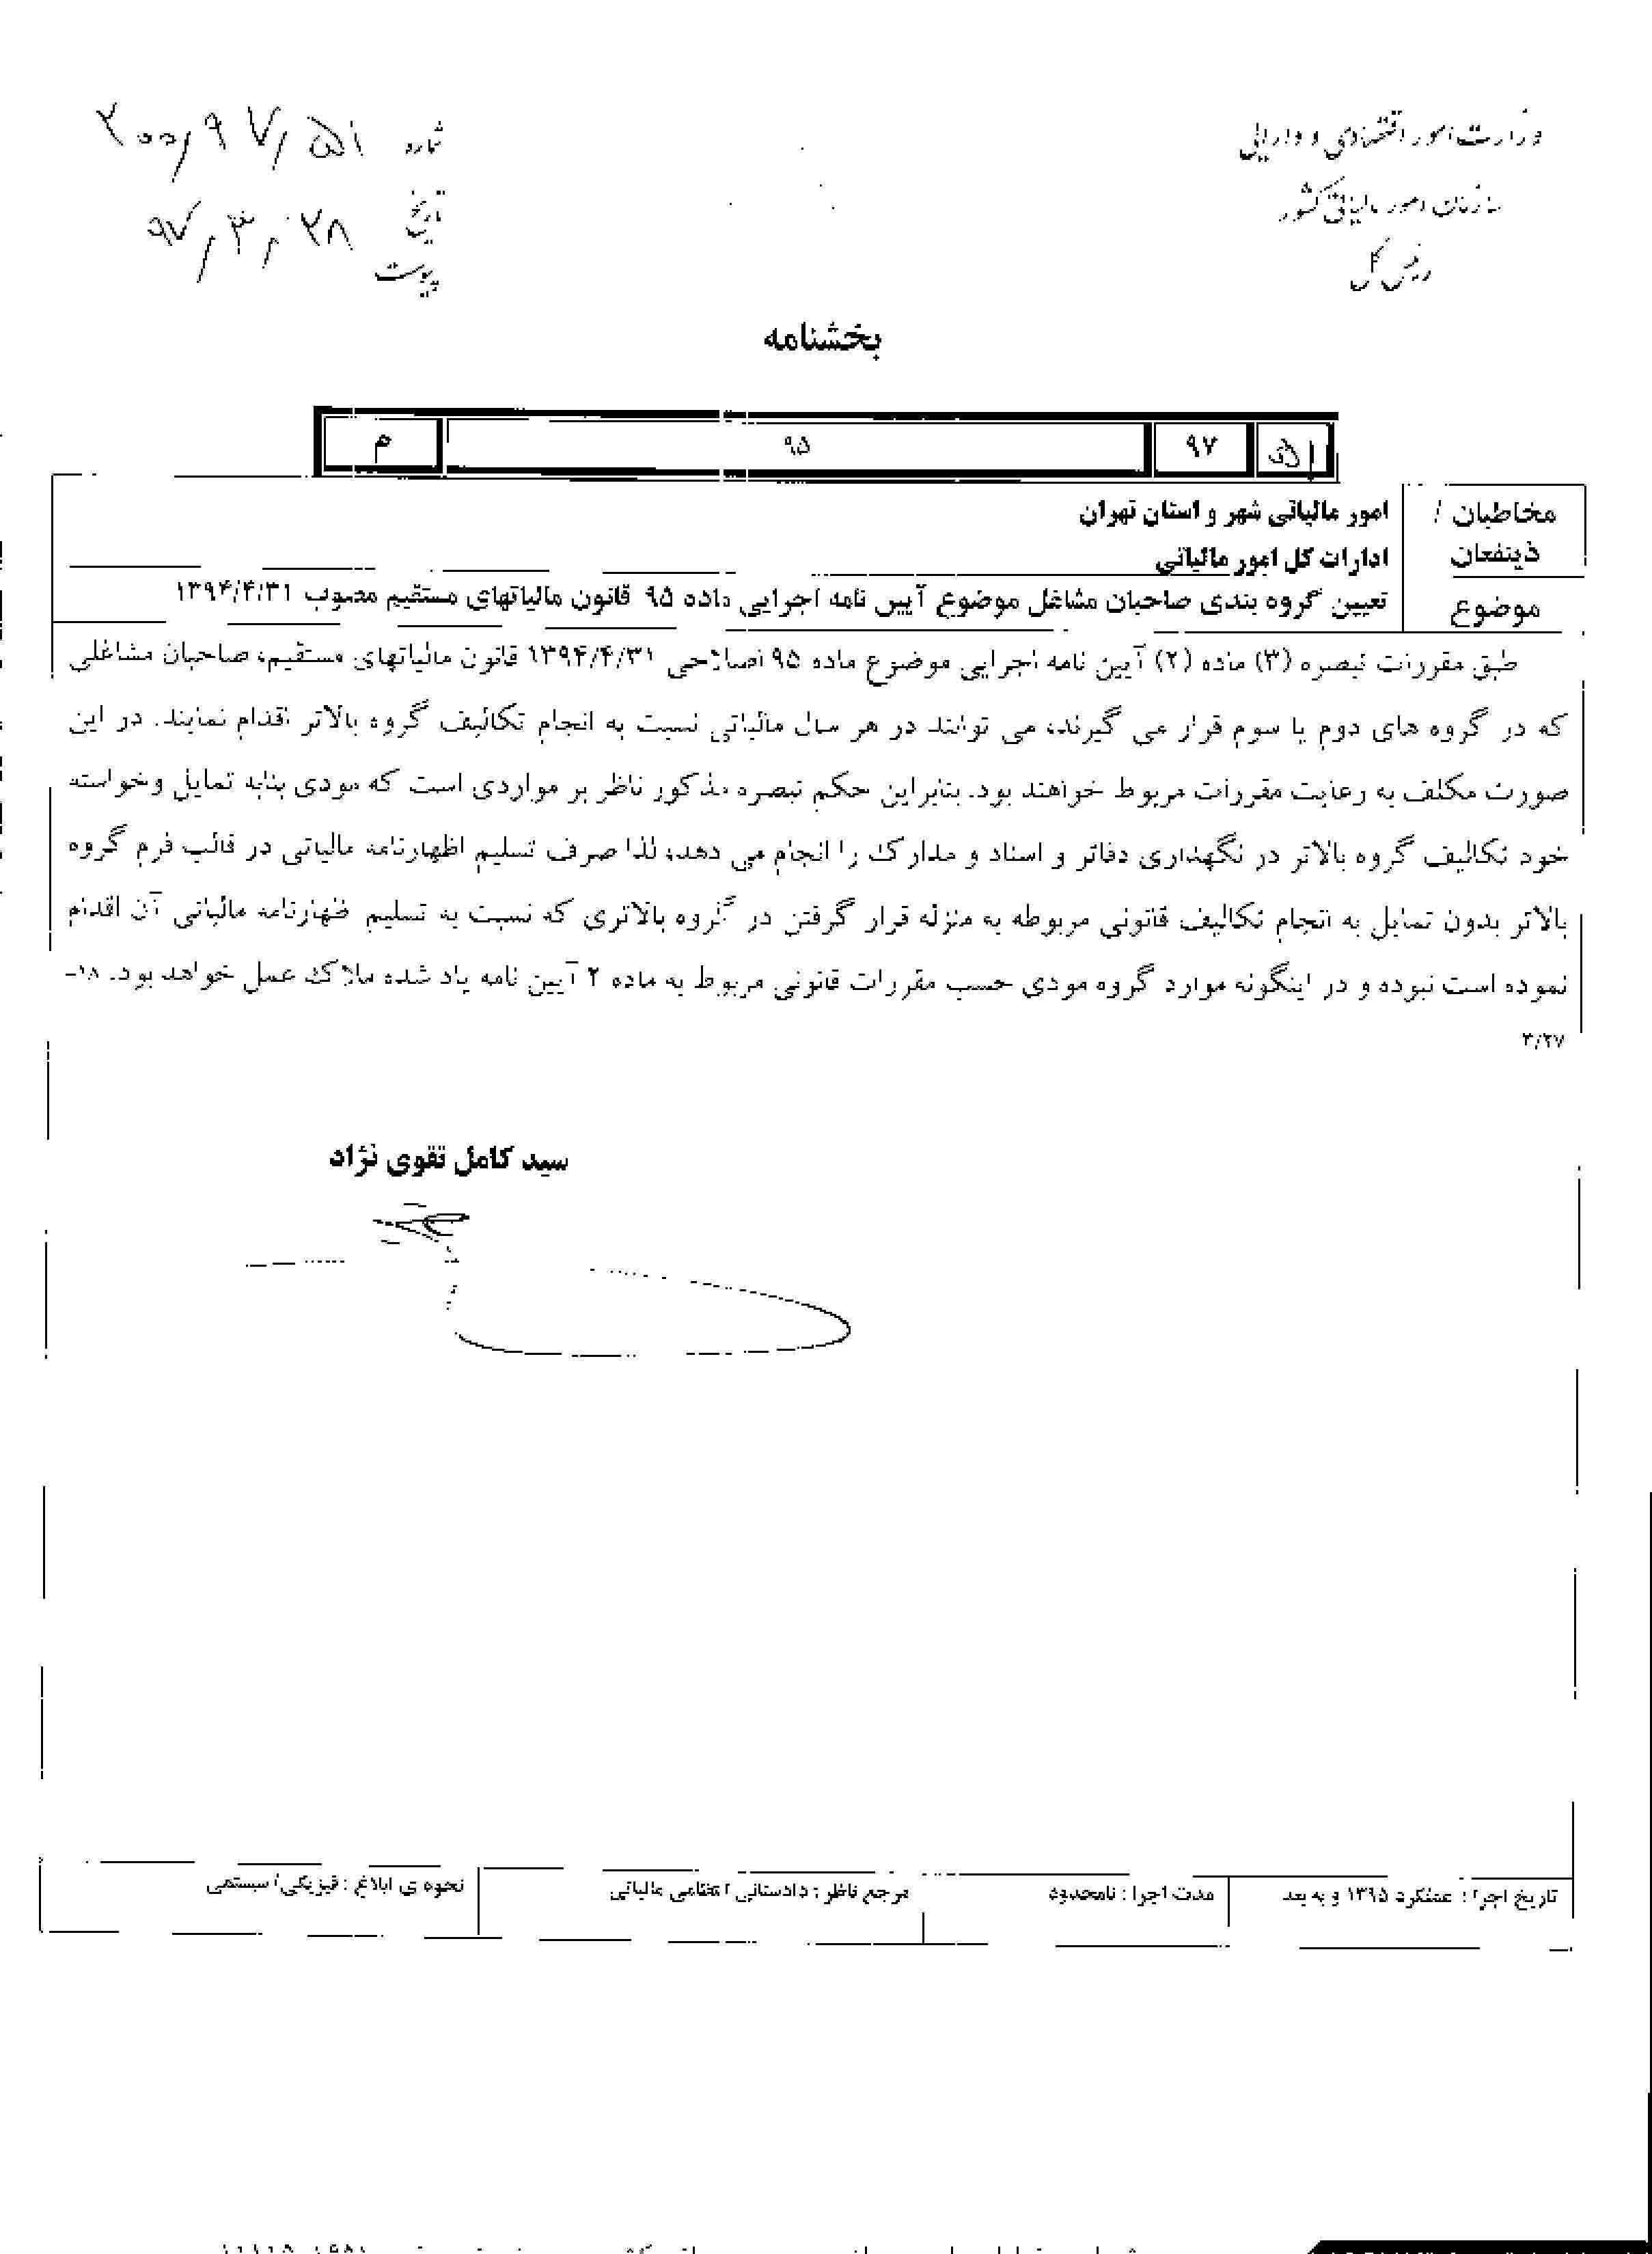 وزارت امور اقتصادی و دارایی
سازمان امور مالیاتی کشور
رئیس کل
شماره ۲۰۰/۹۷/۵۱
تاریخ ۹۷/۳/۲۸
پیوست
بخشنامه
۵۱ ۹۷ ۹۵ م
مخاطبان / ذینفعان
امور مالیاتی شهر و استان تهران
ادارات کل امور مالیاتی
موضوع
تعیین گروه بندی صاحبان مشاغل موضوع آیین نامه اجرایی ماده ۹۵ قانون مالیاتهای مستقیم مصوب ۱۳۹۴/۴/۳۱
طبق مقررات تبصره (۳) ماده (۲) آیین نامه اجرایی موضوع ماده ۹۵ اصلاحی ۱۳۹۴/۴/۳۱ قانون مالیاتهای مستقیم، صاحبان مشاغلی
که در گروه های دوم یا سوم قرار می گیرند، می توانند در هر سال مالیاتی نسبت به انجام تکالیف گروه بالاتر اقدام نمایند. در این
صورت مکلف به رعایت مقررات مربوط خواهند بود. بنابراین حکم تبصره مذکور ناظر بر مواردی است که مودی بنابه تمایل وخواسته
خود تکالیف گروه بالاتر در نگهداری دفاتر و اسناد و مدارک را انجام می دهد، لذا صرف تسلیم اظهارنامه مالیاتی در قالب فرم گروه
بالاتر بدون تمایل به انجام تکالیف قانونی مربوطه به منزله قرار گرفتن در گروه بالاتری که نسبت به تسلیم اظهارنامه مالیاتی آن اقدام
نموده است نبوده و در اینگونه موارد گروه مودی حسب مقررات قانونی مربوط به ماده ۲ آیین نامه یاد شده ملاک عمل خواهد بود. ۱۸-
۳/۲۷
سید کامل تقوی نژاد
تاریخ اجرا : عملکرد ۱۳۹۵ و به بعد
مدت اجرا : نامحدود
مرجع ناظر : دادستانی انتظامی مالیاتی
نحوه ی ابلاغ : فیزیکی/ سیستمی